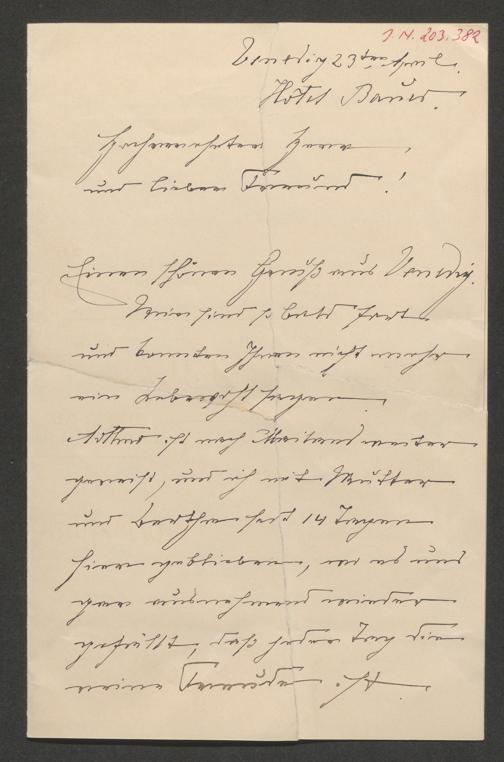 J. N. 203.382
Venedig 23ten April.
Hôtel Bauer.
Hochverehrter Herr,
und lieber Freund!
Einen schönen Gruß aus Venedig.
Wir sind so bald fort
und konnten Ihnen nicht mehr
ein Lebewohl sagen.
ist nach Mailand weiter
gereist, und ich mit Mutter
und Bertha seit 14 Tagen
hier geblieben, wo es uns
gar ausnehmend wieder
gefällt, daß jeder Tag die
reine Freude ist.